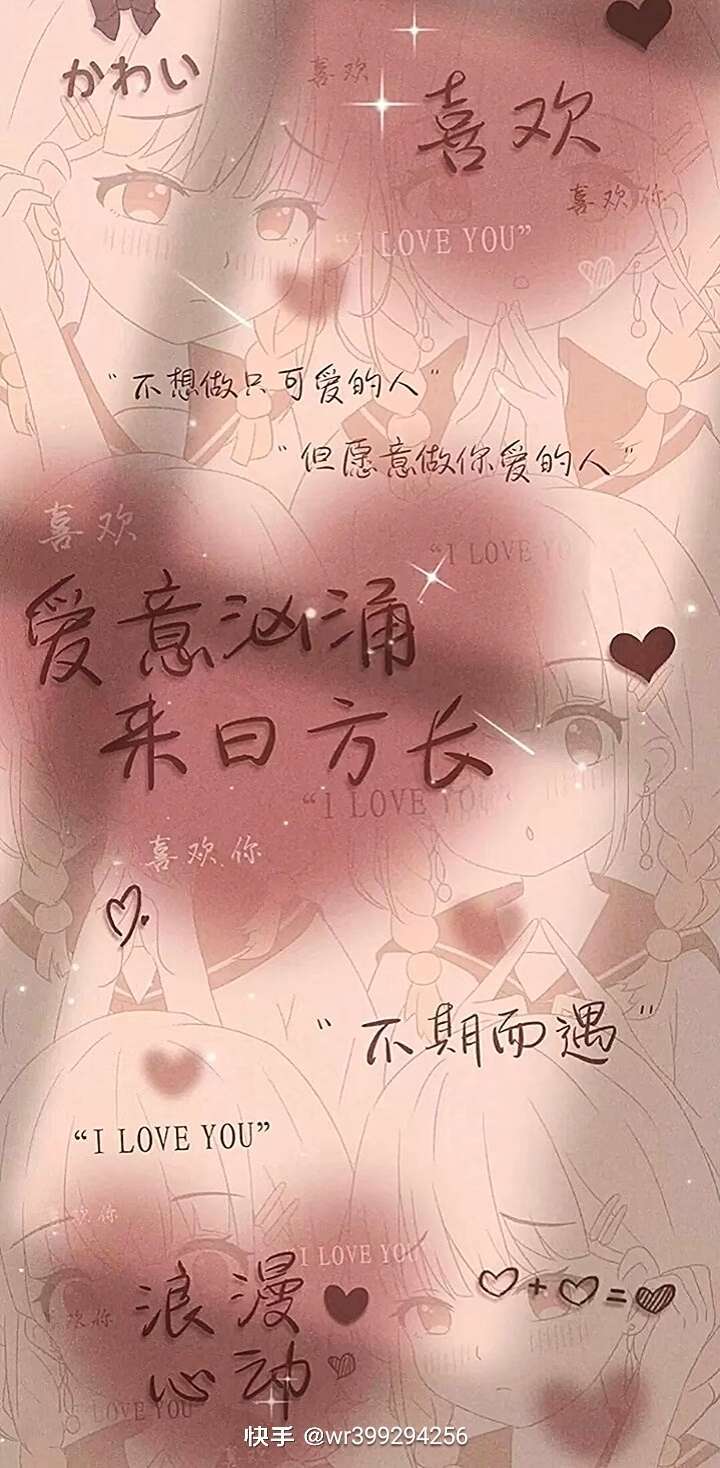 かわい
喜欢
喜欢
喜欢你
“I LOVE YOU”
“不想做只可爱的人”
“但愿意做你爱的人”
喜欢
“I LOVE YOU
爱意汹涌
来日方长
“I LOVE YOU
喜欢你
“不期而遇”
“I LOVE YOU”
欢你
I LOVE YOU”
浪漫
欢你
心动
+ =
I LOVE YOU”
快手 @wr399294256